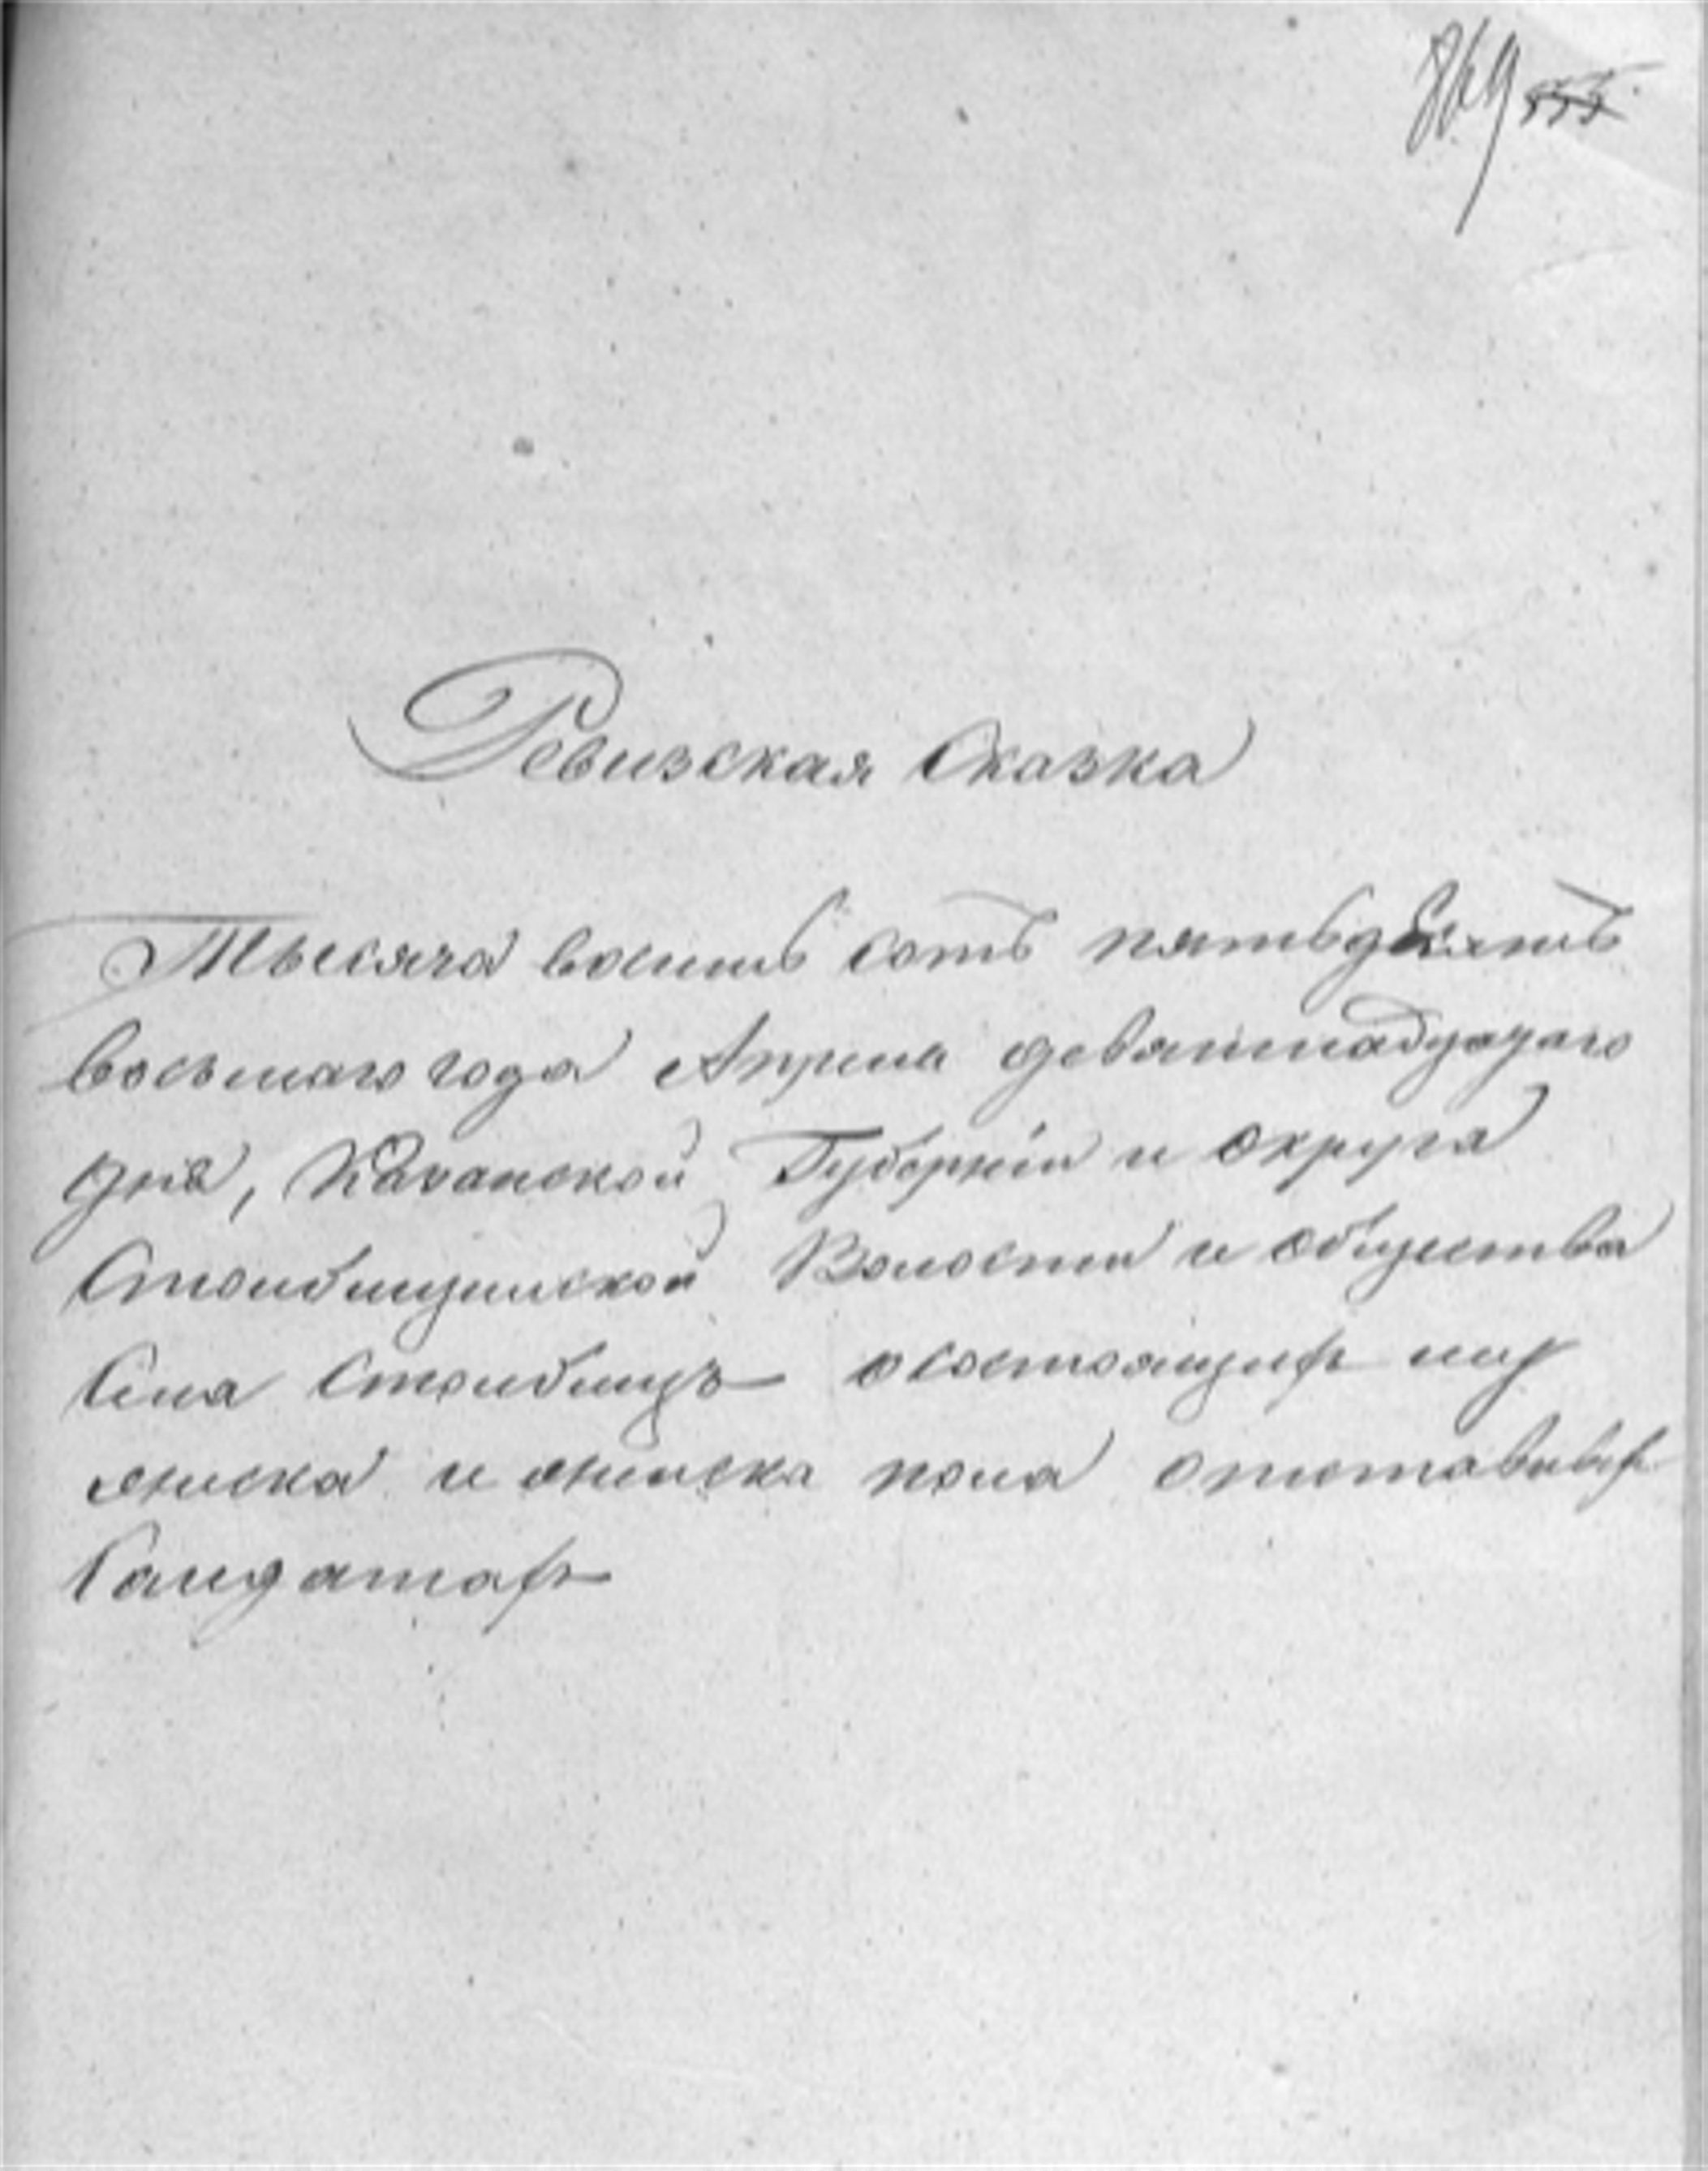 869 555
Ревизская Сказка
Тысяча восемь сотъ пятьдесятъ
восьмаго года Апреля девятнадцатаго
дня, Казанской Губернiи и округа
Столбищинской Волости и общества
Села Столбищъ о состоящихъ муж
жеска и женска пола отставныхъ
Салдатахъ